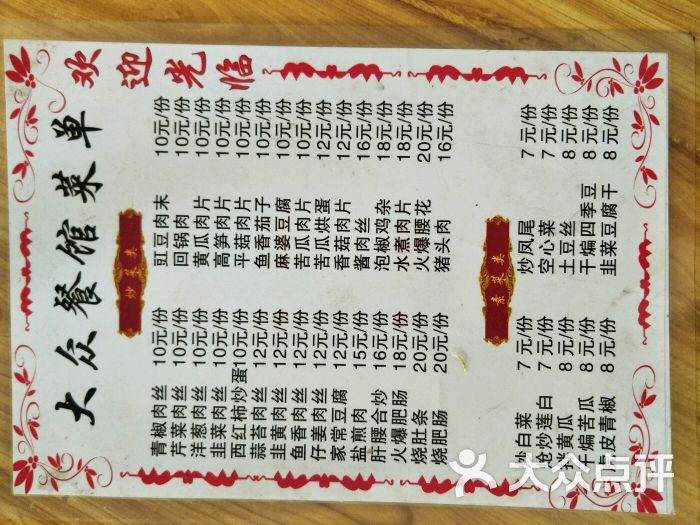 大众餐馆菜单
欢迎光临
炒菜类
青椒肉丝 10元/份 豇豆肉末 10元/份
芹菜肉丝 10元/份 回锅肉 10元/份
洋葱肉丝 10元/份 黄瓜肉片 10元/份
韭菜肉丝 10元/份 高笋肉片 10元/份
西红柿炒蛋 10元/份 平菇肉片 10元/份
蒜苔肉丝 12元/份 鱼香茄子 10元/份
韭黄肉丝 12元/份 麻婆豆腐 10元/份
鱼香肉丝 12元/份 苦瓜肉片 10元/份
仔姜肉丝 12元/份 苦瓜烘蛋 12元/份
家常豆腐 12元/份 香菇肉片 12元/份
盐煎肉 15元/份 酱肉丝 16元/份
肝腰合炒 16元/份 泡椒鸡杂 18元/份
火爆肥肠 18元/份 水煮肉片 18元/份
烧肚条 20元/份 火爆腰花 20元/份
烧肥肠 20元/份 猪头肉 16元/份
素菜类
炒白菜 7元/份 炒凤尾 7元/份
炝炒莲白 7元/份 空心菜 7元/份
黄瓜 8元/份 土豆丝 8元/份
干煸苦瓜 8元/份 干煸四季豆 8元/份
虎皮青椒 8元/份 韭菜豆腐干 8元/份
大众点评